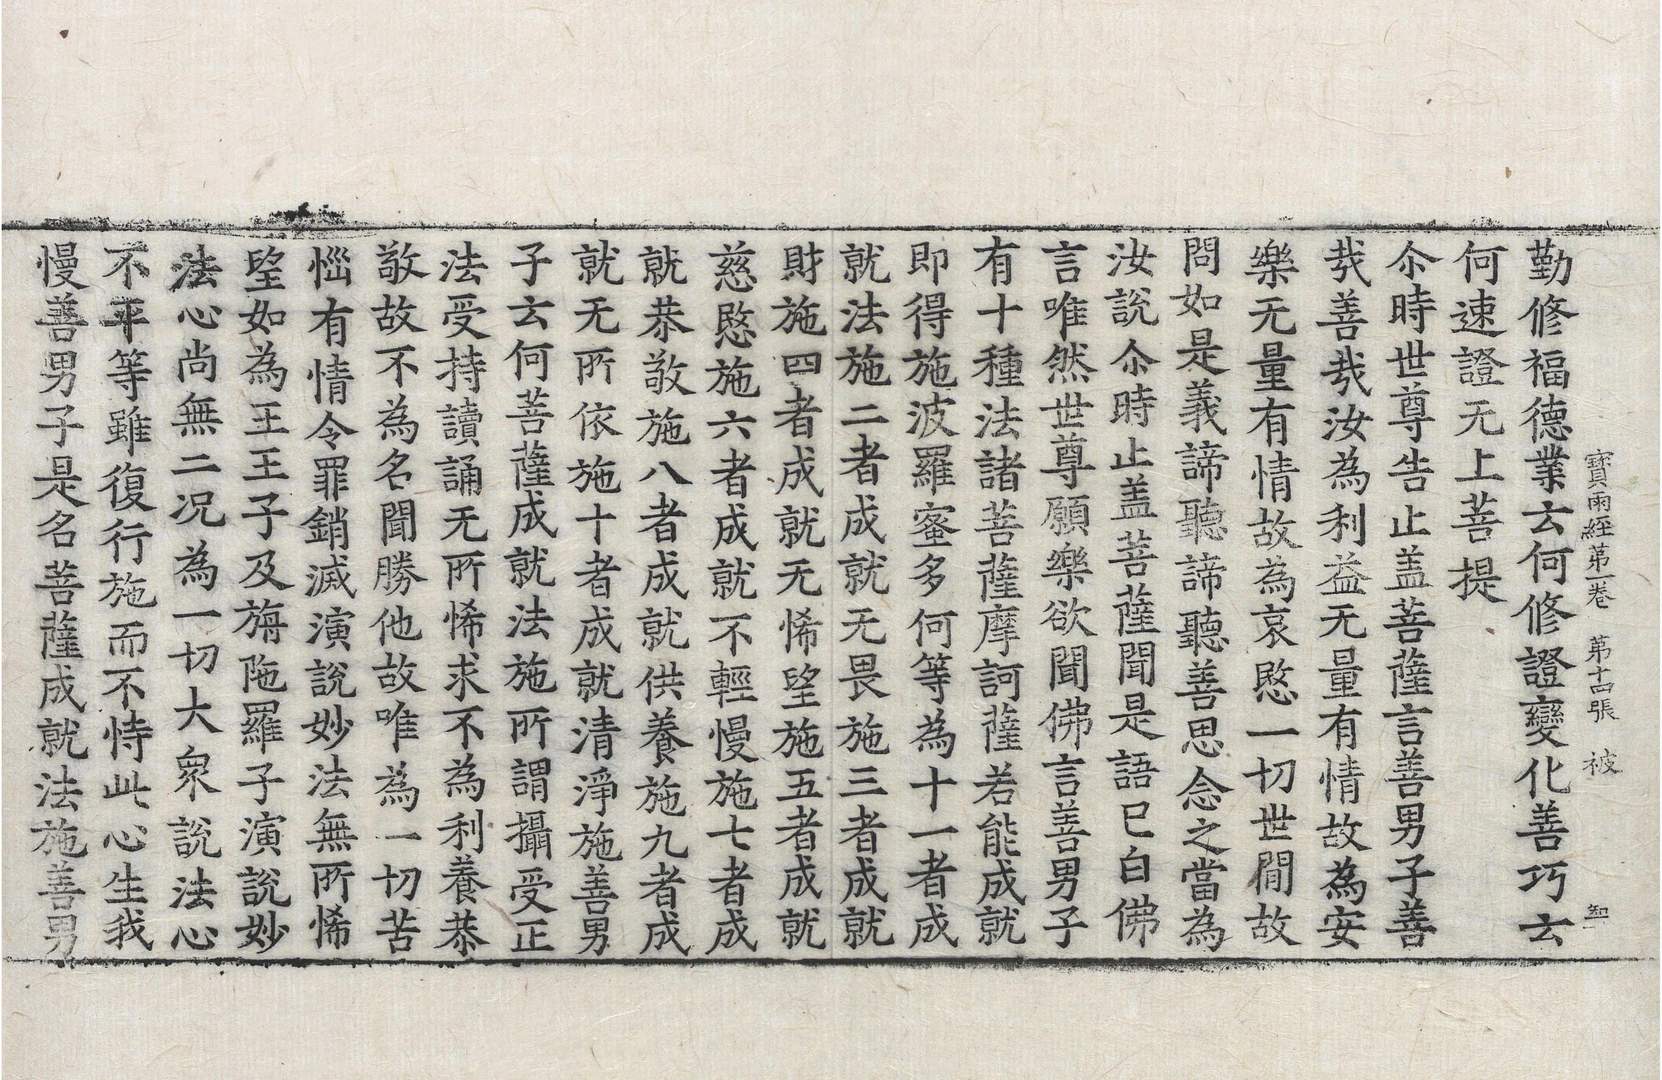 寶雨經第一卷　第十四張　被
勤修福德業云何修證變化善巧云
何速證无上菩提
尒時世尊告止盖菩薩言善男子善
㢤善㢤汝為利益无量有情故為安
樂无量有情故為哀愍一切世間故
問如是義諦聽諦聽善思念之當為
汝說尒時止盖菩薩聞是語已白佛
言唯然世尊願樂欲聞佛言善男子
有十種法諸菩薩摩訶薩若能成就
即得施波羅蜜多何等為十一者成
就法施二者成就无畏施三者成就
財施四者成就无悕望施五者成就
慈愍施六者成就不輕慢施七者成
就恭敬施八者成就供養施九者成
就无所依施十者成就清淨施善男
子云何菩薩成就法施所謂攝受正
法受持讀誦无所悕求不為利養恭
敬故不為名聞勝他故唯為一切苦
惱有情令罪銷滅演說妙法無所悕
望如為王王子及旃陁羅子演說妙
法心尚無二况為一切大衆說法心
不平等雖復行施而不恃此心生我
慢善男子是名菩薩成就法施善男